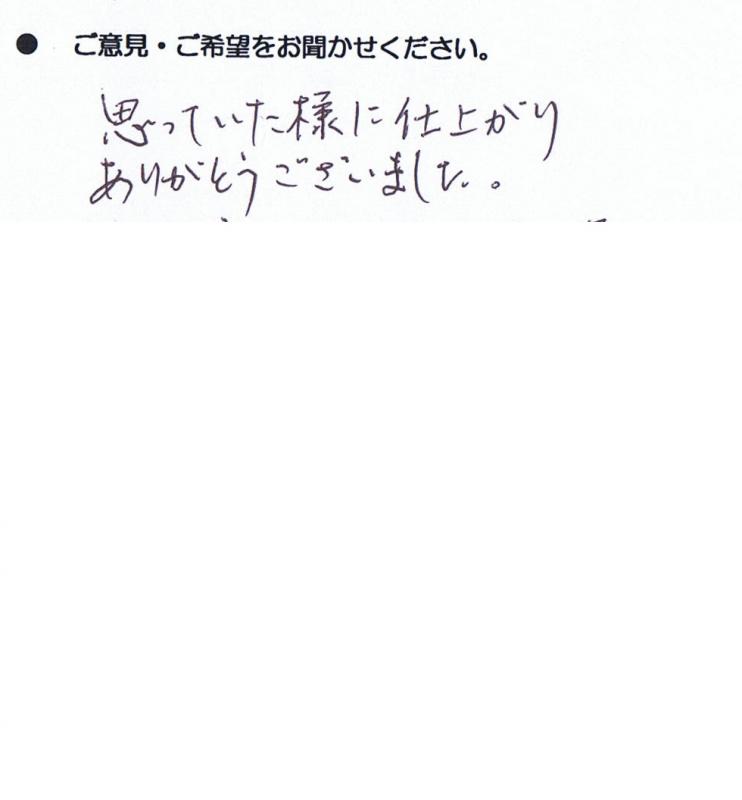 ● ご意見・ご希望をお聞かせください。
思っていた様に仕上がり
ありがとうございました。